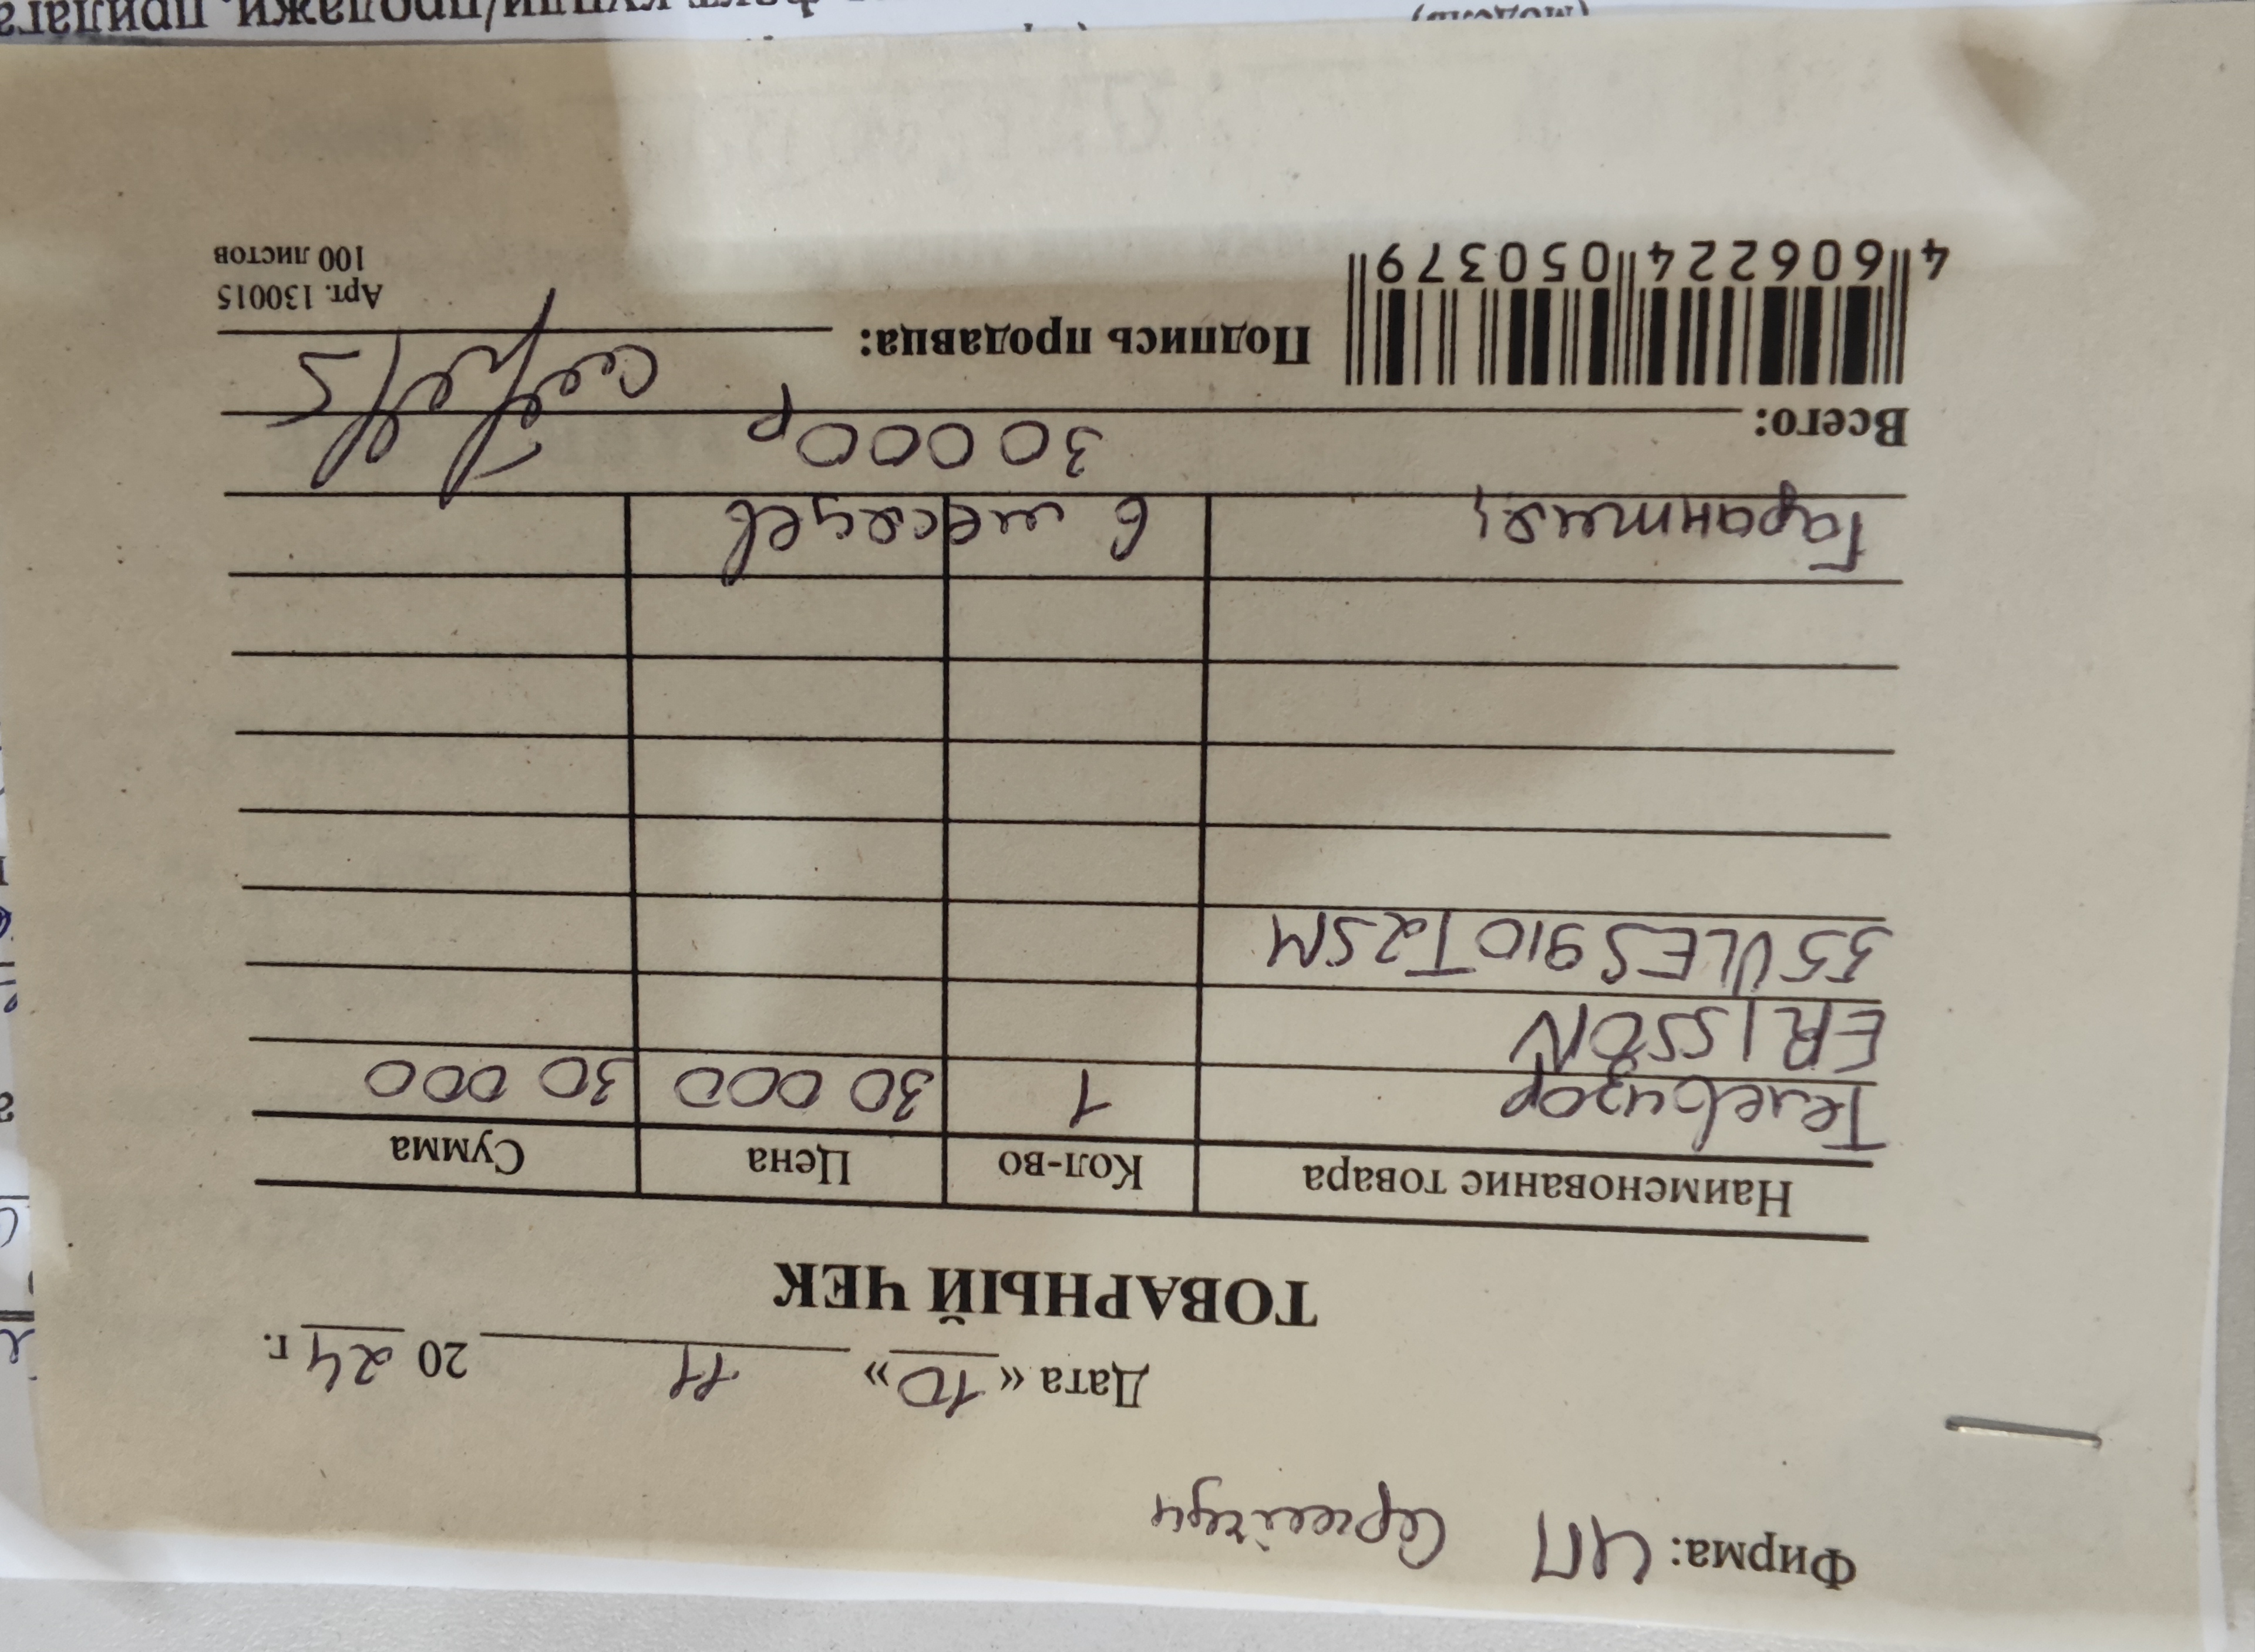 Фирма: ИП
Дата « 10 » 11 20 24 г.
ТОВАРНЫЙ ЧЕК
Наименование товара Кол-во Цена Сумма
Телевизор 1 30 000 30 000
ERISSON
55ULES910T2SM
Гарантия: 6 месяцев
Всего: 30 000р
Подпись продавца:
4 606224 050379
Арт. 130015
100 листов
(модель)
купли/продажи, прилага